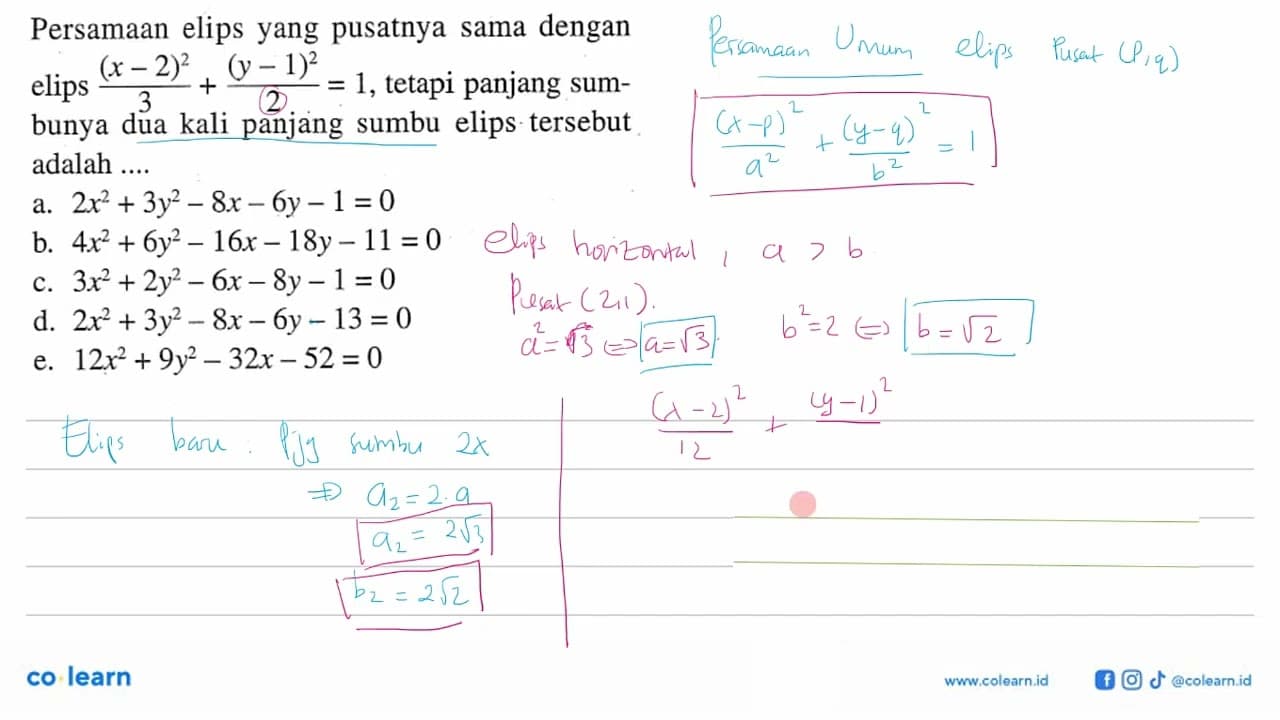 Persamaan elips yang pusatnya sama dengan
elips (x – 2)²/3 + (y – 1)²/2 = 1, tetapi panjang sum-
bunya dua kali panjang sumbu elips tersebut
adalah ....
a. 2x² + 3y² – 8x – 6y – 1 = 0
b. 4x² + 6y² – 16x – 18y – 11 = 0
c. 3x² + 2y² – 6x – 8y – 1 = 0
d. 2x² + 3y² – 8x – 6y – 13 = 0
e. 12x² + 9y² – 32x – 52 = 0
Persamaan Umum elips Pusat (P,q)
(x-p)²/a² + (y-q)²/b² = 1
elips horizontal, a > b
Pusat (2,1).
a² = 3 ⇔ a = √3 b² = 2 ⇔ b = √2
(x-2)²/12 + (y-1)²
Elips baru : Pjg sumbu 2x
⇒ a₂ = 2.a
a₂ = 2√3
b₂ = 2√2
co·learn
www.colearn.id @colearn.id